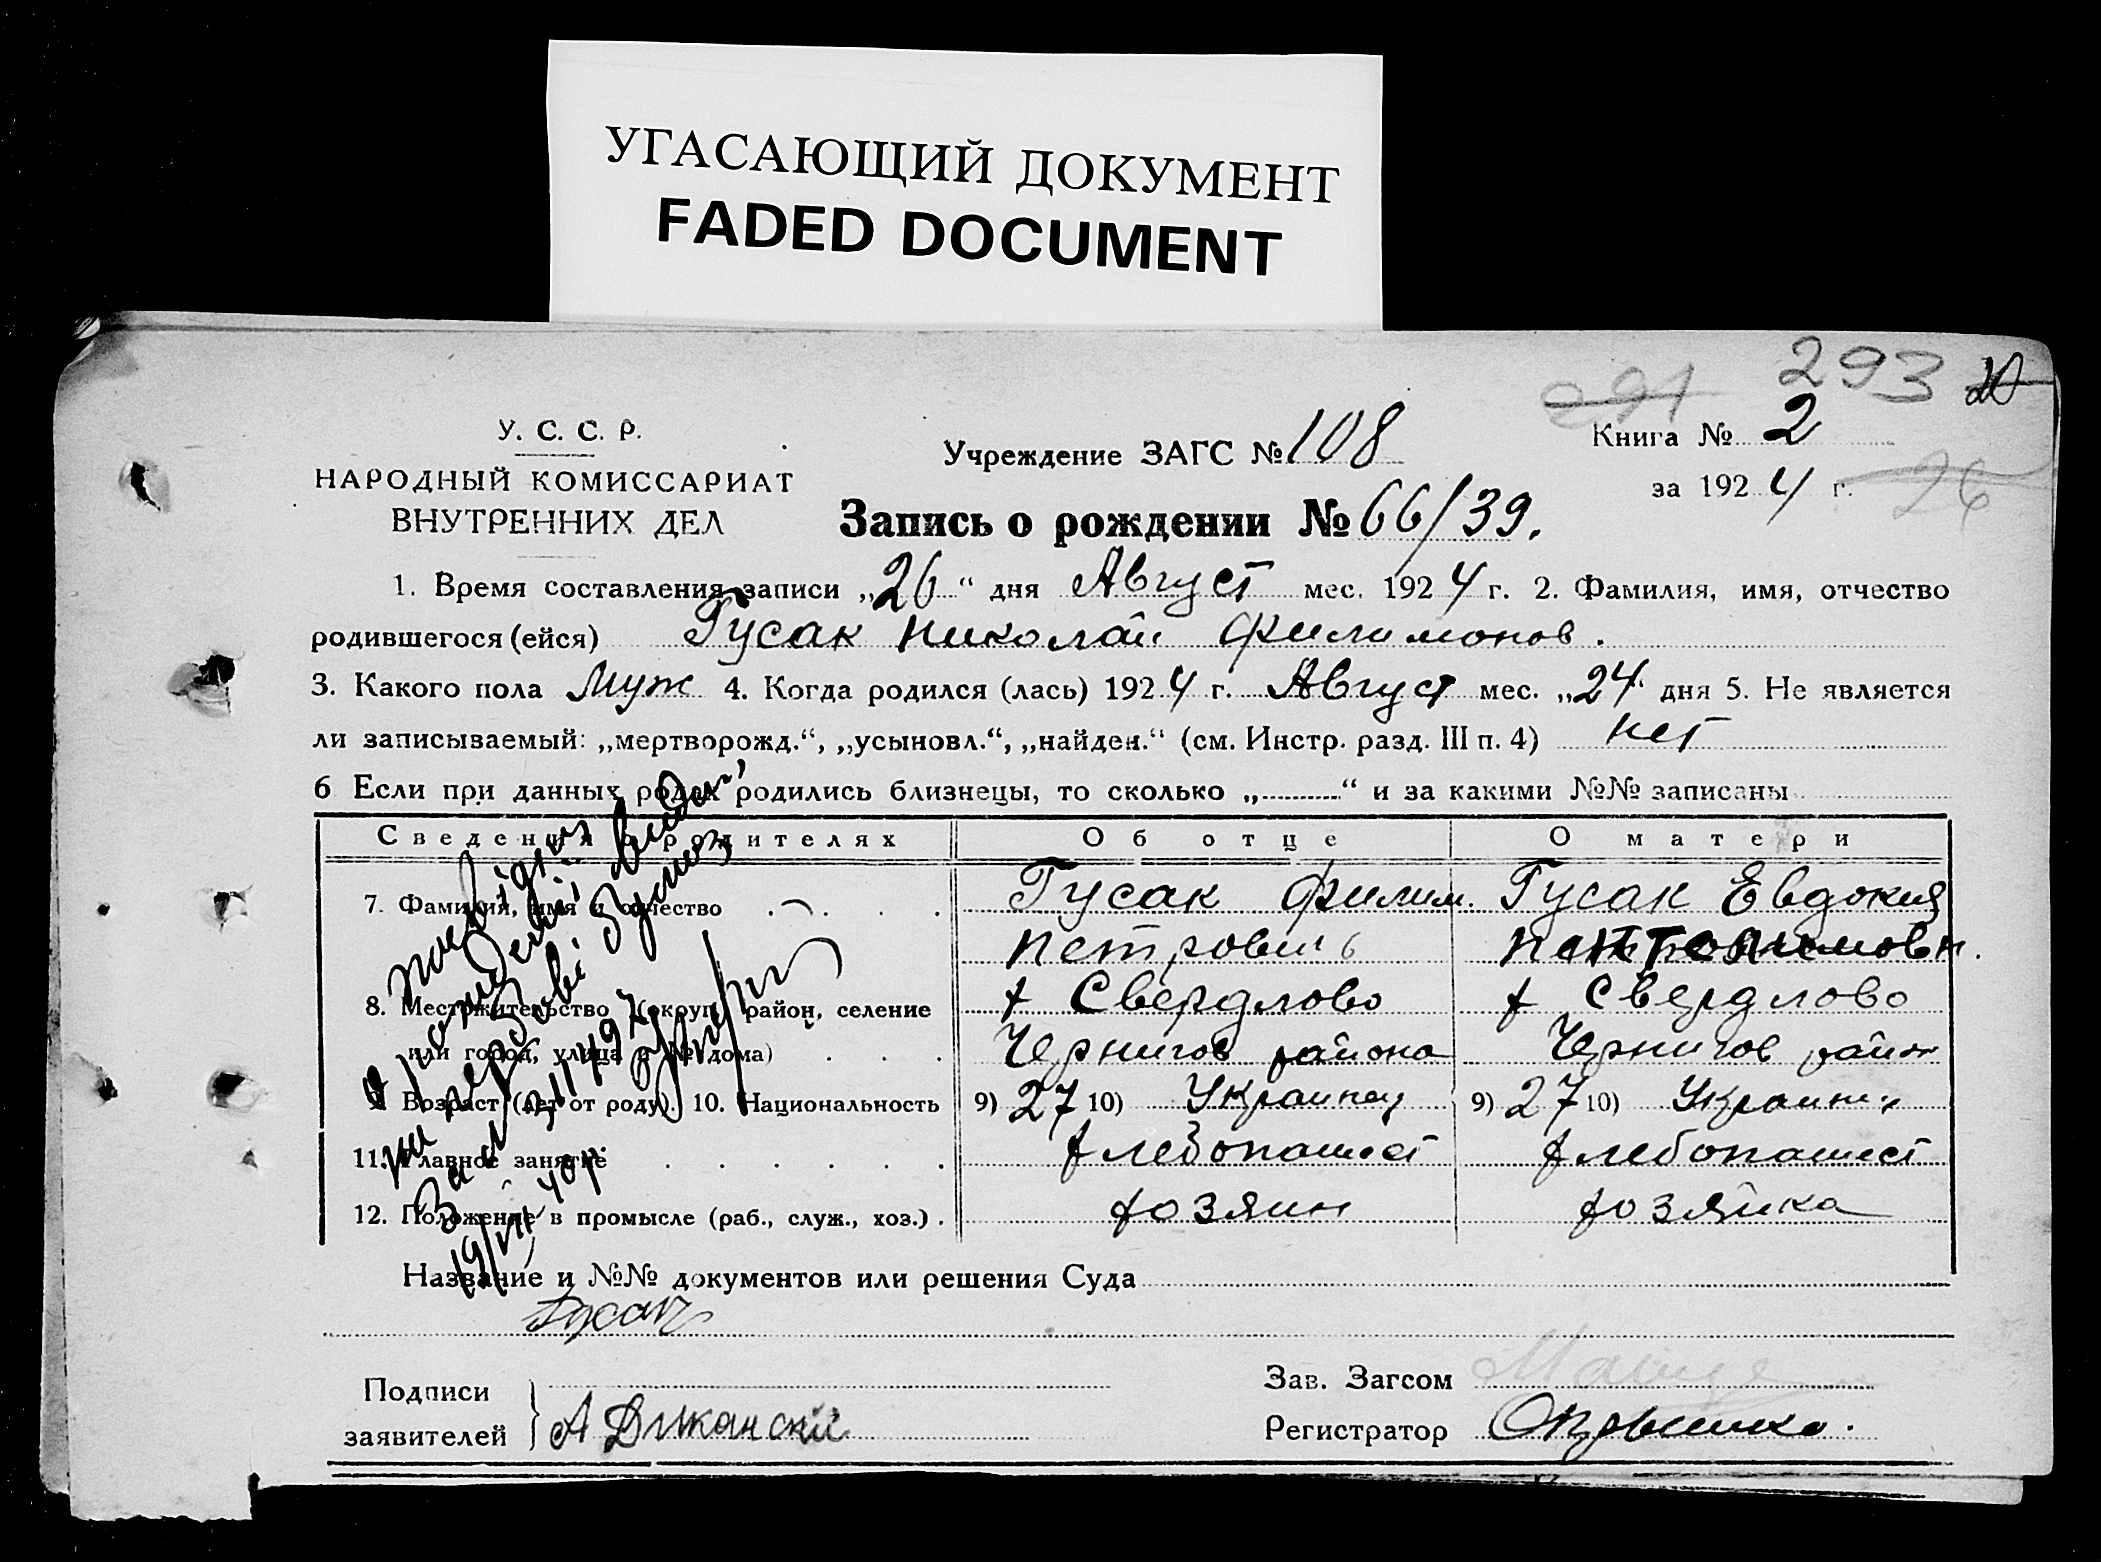 УГАСАЮЩИЙ ДОКУМЕНТ
FADED DOCUMENT
291 293 20
У. С. С. Р.
НАРОДНЫЙ КОМИССАРИАТ
ВНУТРЕННИХ ДЕЛ
Учреждение ЗАГС № 108
Книга № 2
за 1924 г. 26
Запись о рождении № 66/39.
1. Время составления записи „26“ дня Август мес. 1924 г. 2. Фамилия, имя, отчество
родившегося (ейся) Гусак Николай Филимонов.
3. Какого пола Муж 4. Когда родился (лась) 1924 г. Август мес. „24“ дня 5. Не является
ли записываемый: „мертворожд.“, „усыновл.“, „найден.“ (см. Инстр. разд. III п. 4) нет
6 Если при данных родах родились близнецы, то сколько „..........“ и за какими №№ записаны
Сведения о родителях Об отце О матери
7. Фамилия, имя и отчество Гусак Филим. Гусак Евдокия
Петрович
8. Местожительство (округ, район, селение х Свердлово х Свердлово
или город, улица и № дома) Чернигов района Чернигов район
9. Возраст (лет от роду). 10. Национальность 9) 27 10) Украинец 9) 27 10)
11. Главное занятие хлебопашест хлебопашест
12. Положение в промысле (раб., служ., хоз.) хозяин хозяйка
19/VII 40р.
Название и №№ документов или решения Суда
Гусак
Подписи
заявителей
А Дикански
Зав. Загсом
Регистратор